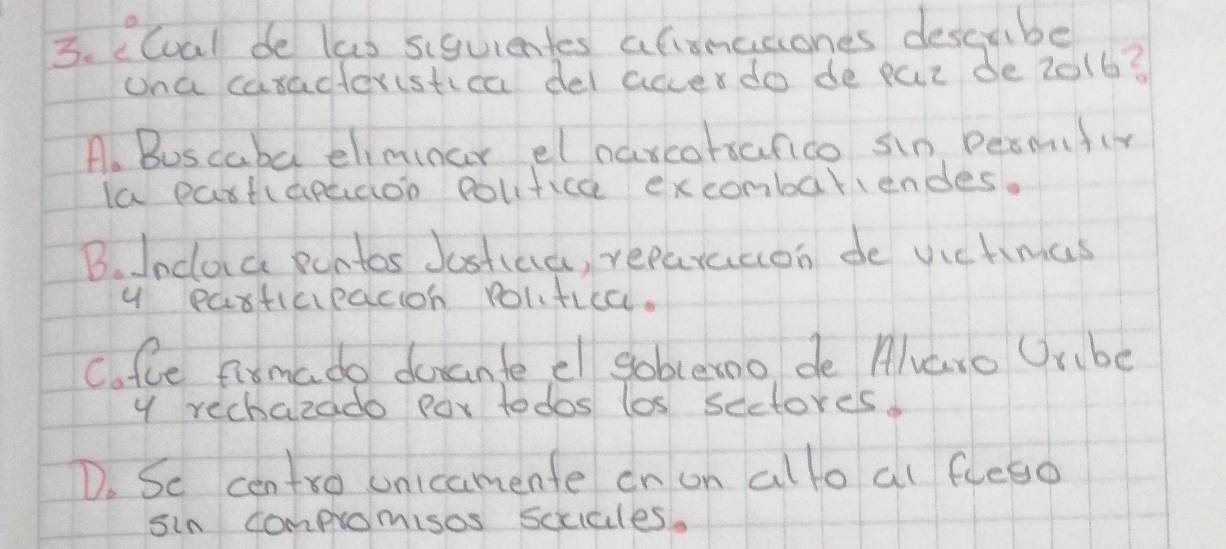 3. ¿Cual de las siguientes afirmaciones describe
una caracteristica del acuerdo de paz de 2016?
A. Buscaba eliminar el narcotrafico sin permitir
la participacion politica excombatiendes.
B. Incluia puntos Justicia, reparacion de victimas
y participacion politica.
C. fue firmado durante el gobierno de Alvaro Uribe
y rechazado por todos los sectores.
D. Se centro unicamente en un alto al fuego
sin compromisos sociales.